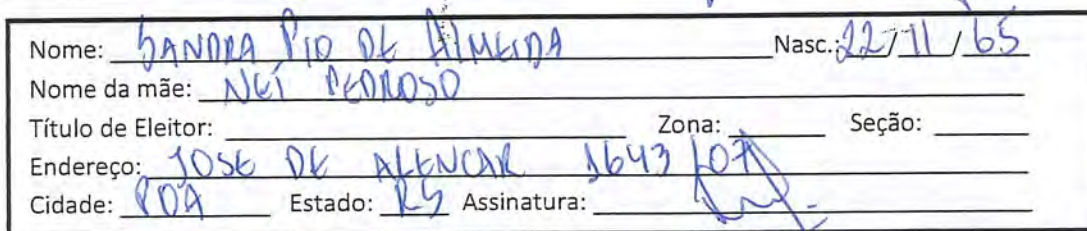 Nome: SANDRA PIO DE ALMEIDA Nasc.: 22/11/65
Nome da mãe: NEÍ PEDROSO
Título de Eleitor: Zona: Seção:
Endereço: JOSE DE ALENCAR 1643 107
Cidade: POA Estado: RS Assinatura: